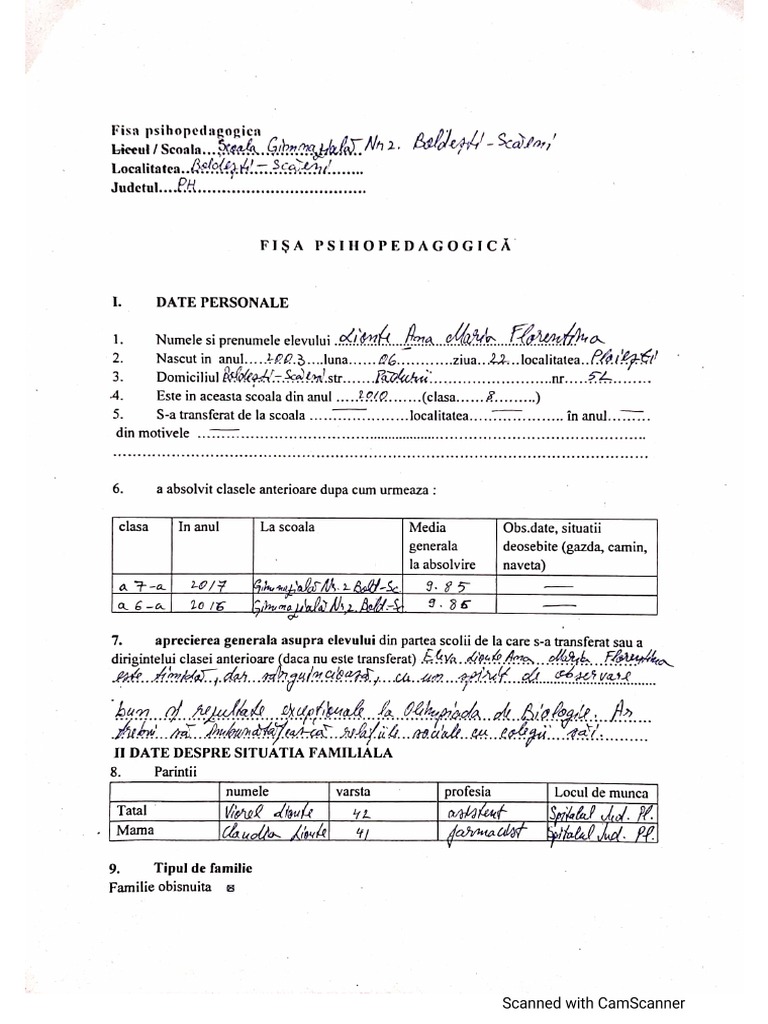 Fisa psihopedagogica
Liceul / Scoala....Școala Gimnazială Nr 2. Boldești-Scăeni
Localitatea..Boldești-Scăeni........
Judetul....PH..............................
FIȘA PSIHOPEDAGOGICĂ
I. DATE PERSONALE
1. Numele si prenumele elevului .Lionte Ana Maria Florentina
2. Nascut in anul.....2003....luna......06............ziua..22...localitatea..Ploiești
3. Domiciliul Boldești-Scăeni.str......Pădurii......nr.....52.........
4. Este in aceasta scoala din anul ....2010.......(clasa.....8.........)
5. S-a transferat de la scoala ..—..localitatea..—.. în anul..—..
din motivele ..—..
6. a absolvit clasele anterioare dupa cum urmeaza :
clasa In anul La scoala Media generala la absolvire Obs.date, situatii deosebite (gazda, camin, naveta)
a 7-a 2017 Gimnazială Nr. 2 Bold-Sc 9.85 —
a 6-a 2016 Gimnazială Nr. 2 Bold-Sc 9.86 —
7. aprecierea generala asupra elevului din partea scolii de la care s-a transferat sau a
dirigintelui clasei anterioare (daca nu este transferat) Eleva Lionte Ana Maria Florentina
este timidă, dar sârguincioasă, cu un spirit de observare
bun și rezultate excepționale la Olimpiada de Biologie. Ar
trebui să îmbunătățească relațiile sociale cu colegii săi.
II DATE DESPRE SITUATIA FAMILIALA
8. Parintii
numele varsta profesia Locul de munca
Tatal Viorel Lionte 42 asistent Spitalul Jud. Pl.
Mama Claudia Lionte 41 farmacist Spitalul Jud. Pl.
9. Tipul de familie
Familie obisnuita ☒
Scanned with CamScanner